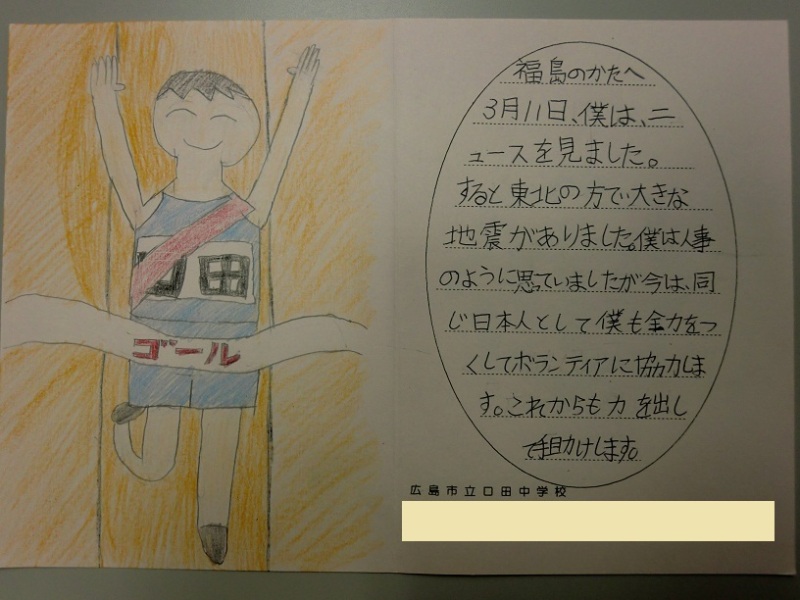 口田
ゴール
福島のかたへ
3月11日、僕は、ニ
ュースを見ました。
すると東北の方で大きな
地震がありました。僕は人事
のように思っていましたが今は、同
じ日本人として僕も全力をつ
くしてボランティアに協力しま
す。これからも力を出し
て手助けします。
広島市立口田中学校